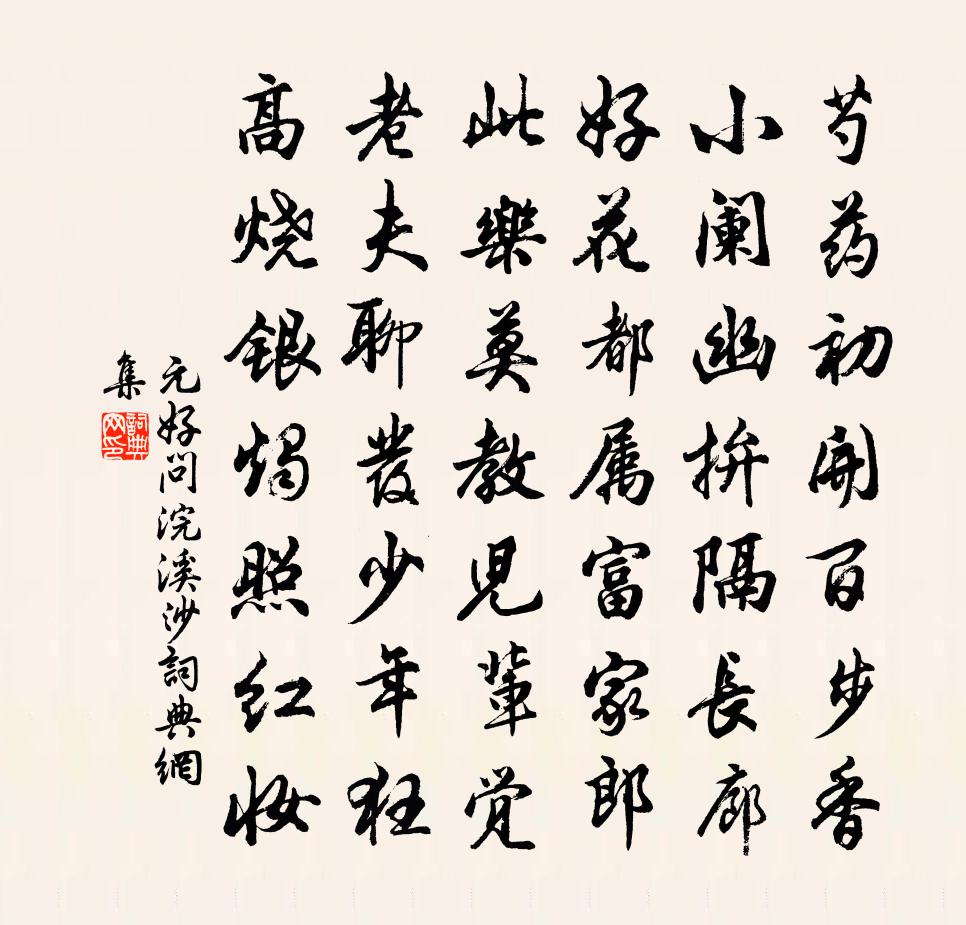 芍药初開百步香
小阑幽拚隔長廊
好花都属富家郎
此樂莫教児輩觉
老夫聊發少年狂
高烧银烛照红妝
元好问浣溪沙詞典網
集
詞典网印